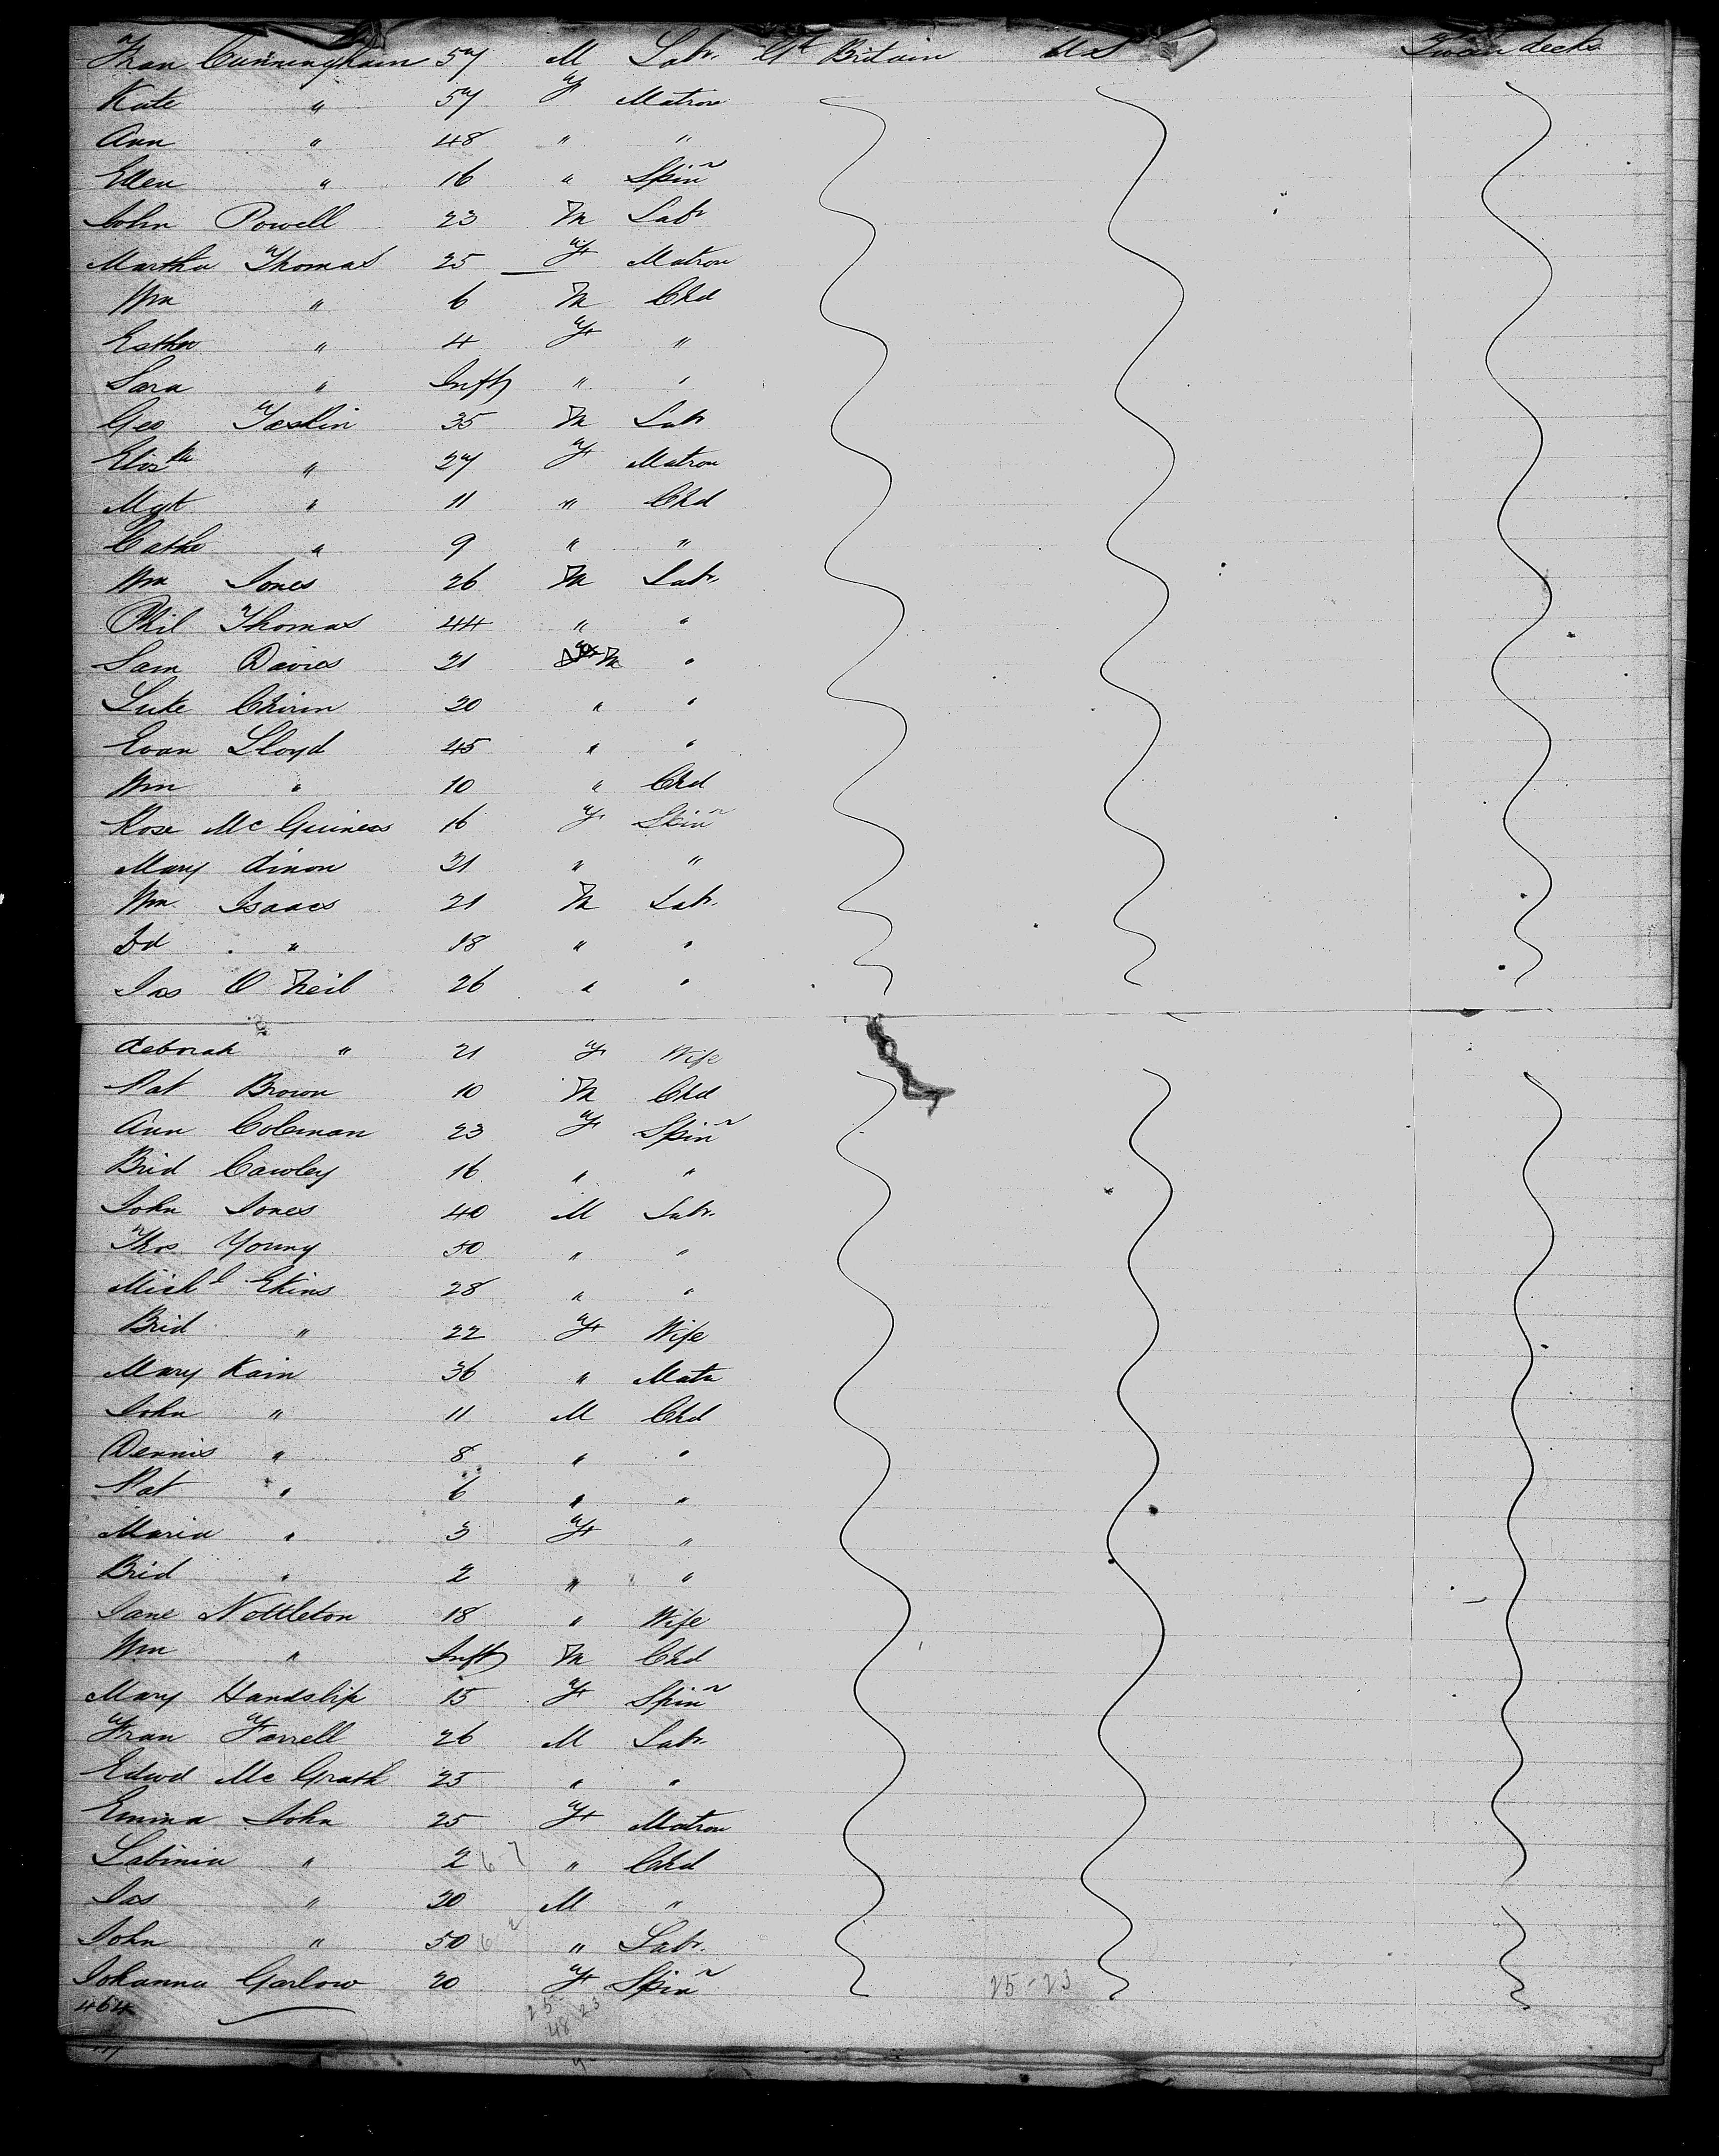 Fran Cunningham 57 M Labr. Gt Britain U S Tween decks
Kate " 57 F Matron
Ann " 48 " "
Ellen " 16 " Spinr
John Powell 23 M Labr
Martha Thomas 25 F Matron
Wm " 6 M Chd
Esther " 4 F "
Sara " Inft " "
Geo Taskin 35 M Labr
Elizth " 27 F Matron
Mgt " 11 " Chd
Cathe " 9 " "
Wm Jones 26 M Labr.
Phil Thomas 44 " "
Sam Davies 21 M "
Luke Chirm 20 " "
Evan Lloyd 45 " "
Wm " 10 " Chd
Rose Mc Guiness 16 F Spinr
Mary dinon 21 " "
Wm Isaacs 21 M Labr.
Dd " 18 " "
Jas O Neil 26 " "
deborah " 21 F Wife
Pat Brown 10 M Chd
Ann Coleman 23 F Spinr
Brid Cawley 16 " "
John Jones 40 M Labr.
Thos Young 50 " "
Michl Ekins 28 " "
Brid " 22 F Wife
Mary Kain 36 " Matn
John " 11 M Chd
Dennis " 8 " "
Pat " 6 " "
Maria " 3 F "
Brid " 2 " "
Jane Nottleton 18 " Wife
Wm " Inft M Chd
Mary Handslip 15 F Spinr
Fran Farrell 26 M Labr.
Edwd Mc Grath 25 " "
Emma John 25 F Matron
Labinia " 2 6 7 " Chd
Jas " 20 M "
John " 50 6 " Labr.
Johanna Garlow 20 F Spinr 25-23
464 25 23
48